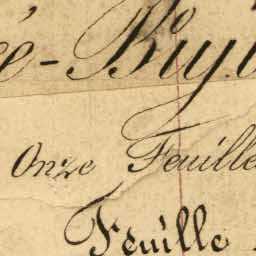 é-Bij
Onze Feuille
Feuille